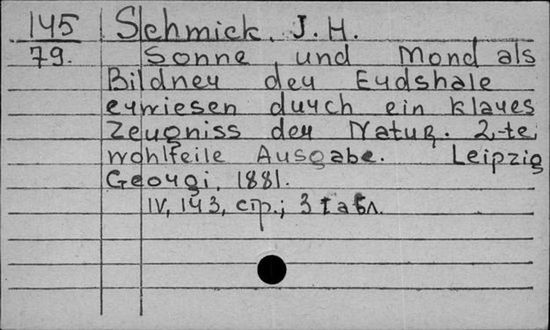 145 Schmick, J. H.
79. Sonne und Mond als
Bildner der Erdshale
erwiesen durch ein klares
Zeugniss der Natur. 2-te,
wohlfeile Ausgabe. Leipzig
Georgi, 1881.
IV, 143, стр.; 3 табл.